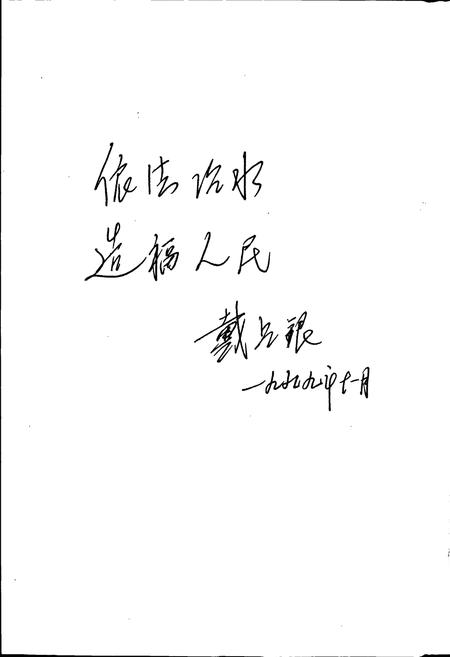 依法治水
造福人民
戴公银
一九九九年十一月